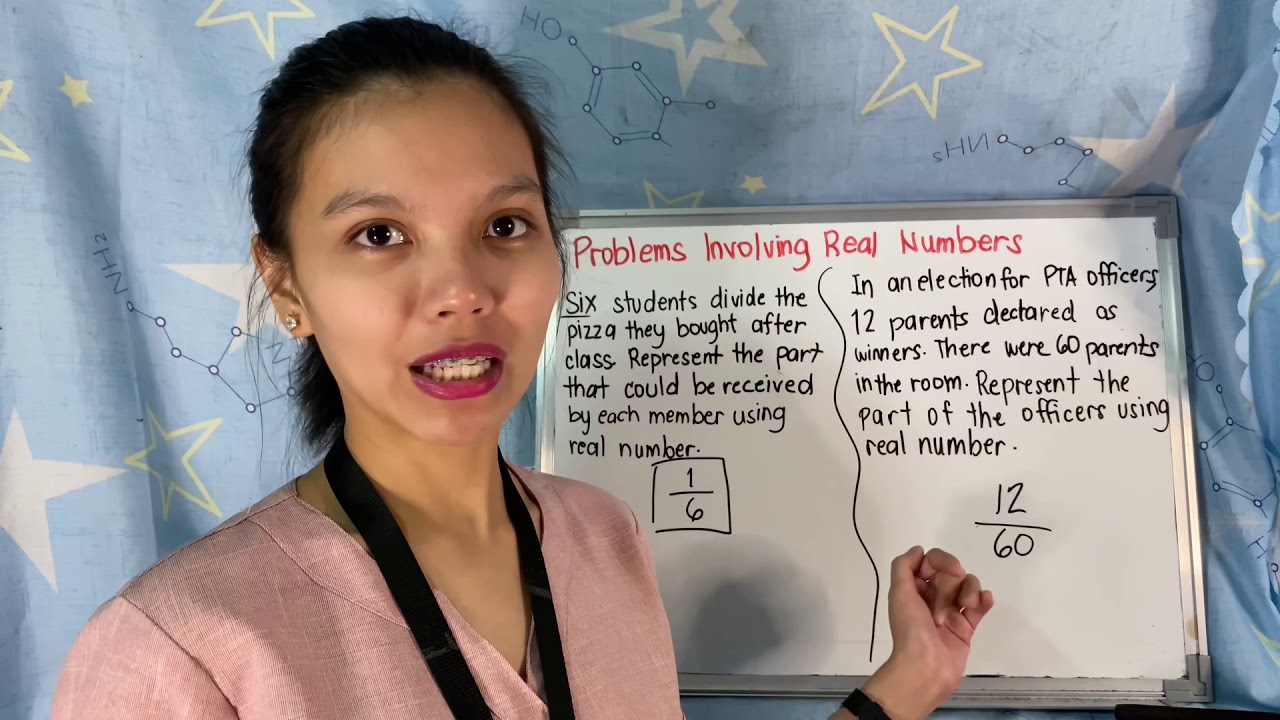 Problems Involving Real Numbers
Six students divide the
pizza they bought after
class. Represent the part
that could be received
by each member using
real number.
1
6
In an election for PTA officers,
12 parents declared as
winners. There were 60 parents
in the room. Represent the
part of the officers using
real number.
12
60
HO
NH₂
NH₂
HO